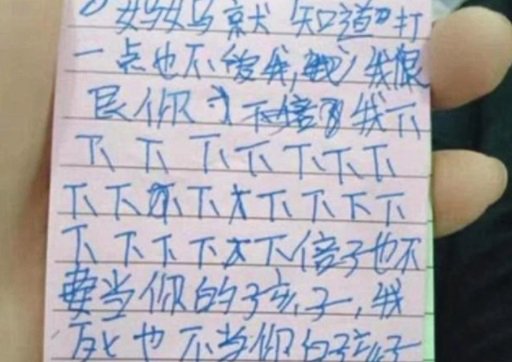 妈妈就“知道”打
一点也不爱我,我很
艮你 我下
下下下下下下下
下下下下大下下下下
下下下下大下倍子也不
要当你的孩子,我
死也不当你的孩子